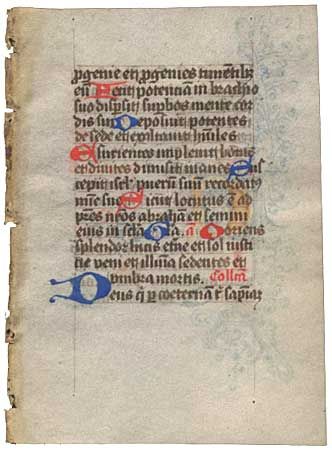 pgenie et pgenies timentibz
eū Fecit potentiam in brachio
suo dispsit supbos mente cor
dis sui Deposuit potentes
de sede et exaltauit hūiles
Esurientes impleuit bonis
et diuites dimisit inanes Sus
cepit isrl puerū suū recordatꝰ
mīe sue Sicut locutus ē ad
pres nros abrahā et semini
eius in scla Gla. a O oriens
splendor lucis etne et sol iusti
tie veni et illūia sedentes et
vmbra mortis. Collta
Deus q p coeternam t sapiam